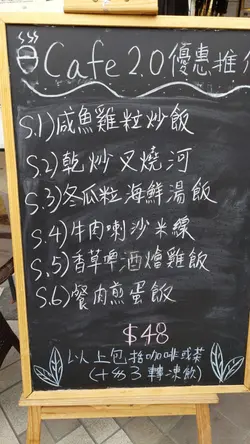 Cafe 2.0 優惠推
S.1)咸魚雞粒炒飯
S.2)乾炒叉燒河
S.3)冬瓜粒海鮮湯飯
S.4)牛肉喇沙米線
S.5)香草啤酒燴雞飯
S.6)餐肉煎蛋飯
$48
以上包括咖啡或茶
(+$3轉凍飲)